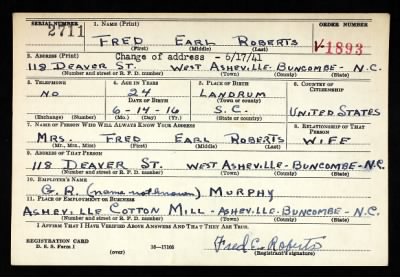 SERIAL NUMBER 1. NAME (Print) ORDER NUMBER
2711 FRED EARL ROBERTS V-1893
(First) (Middle) (Last)
2. ADDRESS (Print) Change of address - 6/17/41
118 DEAVER ST. WEST ASHEVILLE-BUNCOMBE-N.C.
(Number and street or R. F. D. number) (Town) (County) (State)
3. TELEPHONE 4. AGE IN YEARS 5. PLACE OF BIRTH 6. COUNTRY OF CITIZENSHIP
NO 24 LANDRUM
DATE OF BIRTH (Town or county)
6-14-16 S.C. UNITED STATES
(Exchange) (Number) (Mo.) (Day) (Yr.) (State or country)
7. NAME OF PERSON WHO WILL ALWAYS KNOW YOUR ADDRESS 8. RELATIONSHIP OF THAT PERSON
MRS. FRED EARL ROBERTS WIFE
(Mr., Mrs., Miss) (First) (Middle) (Last)
9. ADDRESS OF THAT PERSON
118 DEAVER ST. WEST ASHEVILLE-BUNCOMBE-N.C.
(Number and street or R. F. D. number) (Town) (County) (State)
10. EMPLOYER'S NAME
G. R. (name not known) MURPHY
11. PLACE OF EMPLOYMENT OR BUSINESS
ASHEVILLE COTTON MILL - ASHEVILLE-BUNCOMBE-N.C.
(Number and street or R. F. D. number) (Town) (County) (State)
I AFFIRM THAT I HAVE VERIFIED ABOVE ANSWERS AND THAT THEY ARE TRUE.
REGISTRATION CARD
D. S. S. Form 1 (over) 16-17105 Fred E. Roberts
(Registrant's signature)